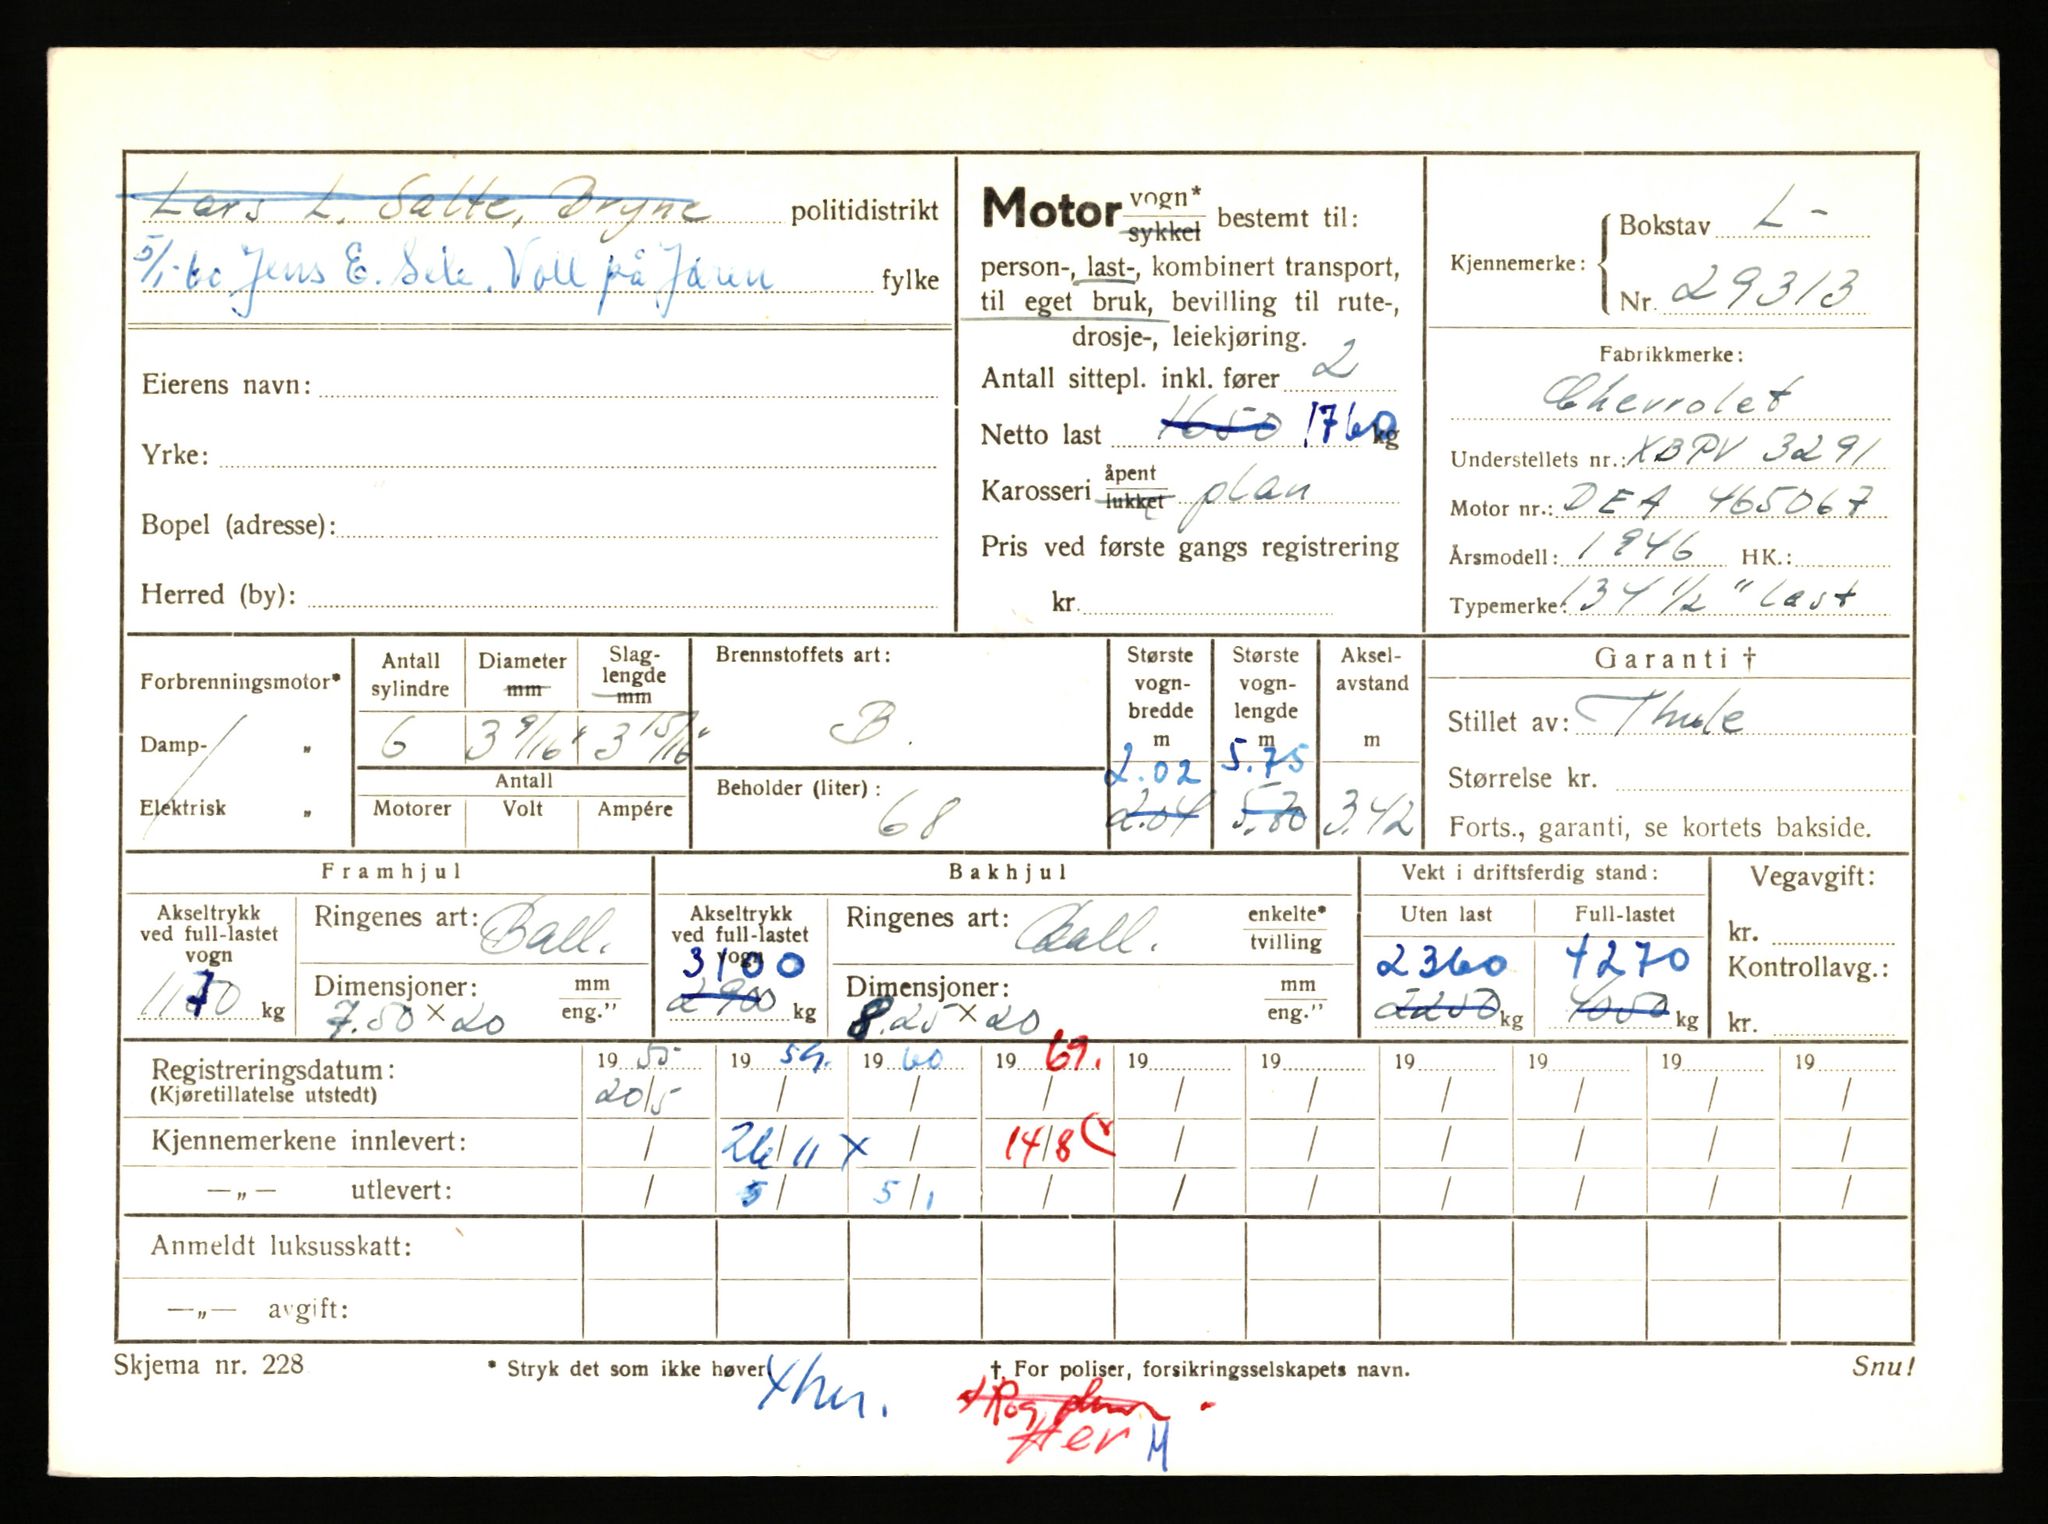 Lars L. Salte, Bryne politidistrikt
5/1-60 Jens E. Sele. Voll på Jæren fylke
Eierens navn:
Yrke:
Bopel (adresse):
Herred (by):
Motor vogn* sykkel bestemt til:
person-, last-, kombinert transport,
til eget bruk, bevilling til rute-,
drosje-, leiekjøring.
Antall sittepl. inkl. fører 2
Netto last 1650 1760 kg
Karosseri åpent lukket plan
Pris ved første gangs registrering
kr.
Kjennemerke: Bokstav L-
Nr. 29313
Fabrikkmerke:
Chevrolet
Understellets nr.: XBPV 3291
Motor nr.: DEA 465067
Årsmodell: 1946 HK.:
Typemerke: 134 1/2 " last
Forbrenningsmotor*
Damp- „
Elektrisk „
Antall sylindre 6
Diameter mm 3 9/16"
Slaglengde mm 3 15/16"
Antall
Motorer Volt Ampére
Brennstoffets art:
B.
Beholder (liter):
68
Største vognbredde m 2.02 2.04
Største vognlengde m 5.75 5.80
Akselavstand m 3.42
Garanti †
Stillet av: Thule
Størrelse kr.
Forts., garanti, se kortets bakside.
Framhjul
Akseltrykk ved full-lastet vogn 1170 kg
Ringenes art: Ball.
Dimensjoner: mm eng."
7.50 x 20
Bakhjul
Akseltrykk ved full-lastet vogn 3100 2900 kg
Ringenes art: Ball. enkelte* tvilling
Dimensjoner: mm eng."
8.25 x 20
Vekt i driftsferdig stand:
Uten last Full-lastet
2360 4270
2250 kg 4050 kg
Vegavgift:
kr.
Kontrollavg.:
kr.
Registreringsdatum: 1955 1959. 1960 1969. 19 19 19 19 19 19
(Kjøretillatelse utstedt) 20/5 / / / / / / / / /
Kjennemerkene innlevert: / 26/11 x / 14/8 / / / / / /
—„— utlevert: / 5/ 5/1 / / / / / / /
Anmeldt luksusskatt:
—„— avgift:
Skjema nr. 228 * Stryk det som ikke høver †. For poliser, forsikringsselskapets navn. Snu!
x her.
Her M